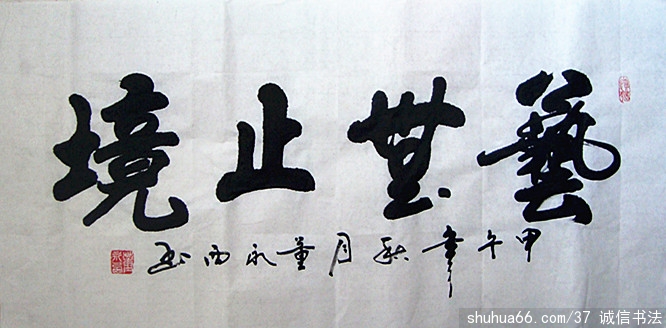 藝無止境
甲午年秋月董永西书
shuhua66.com/37 诚信书法